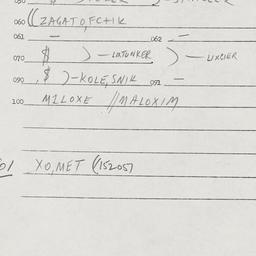 060 ((ZAGATO,FC+IK
061 — 062 —
070 $ )—LATONKER )—LIXCIER
090 ,$ )-KOLE,SNIK 091 —
100 MILOXE //MALOXIM
XO,MET (/15205)